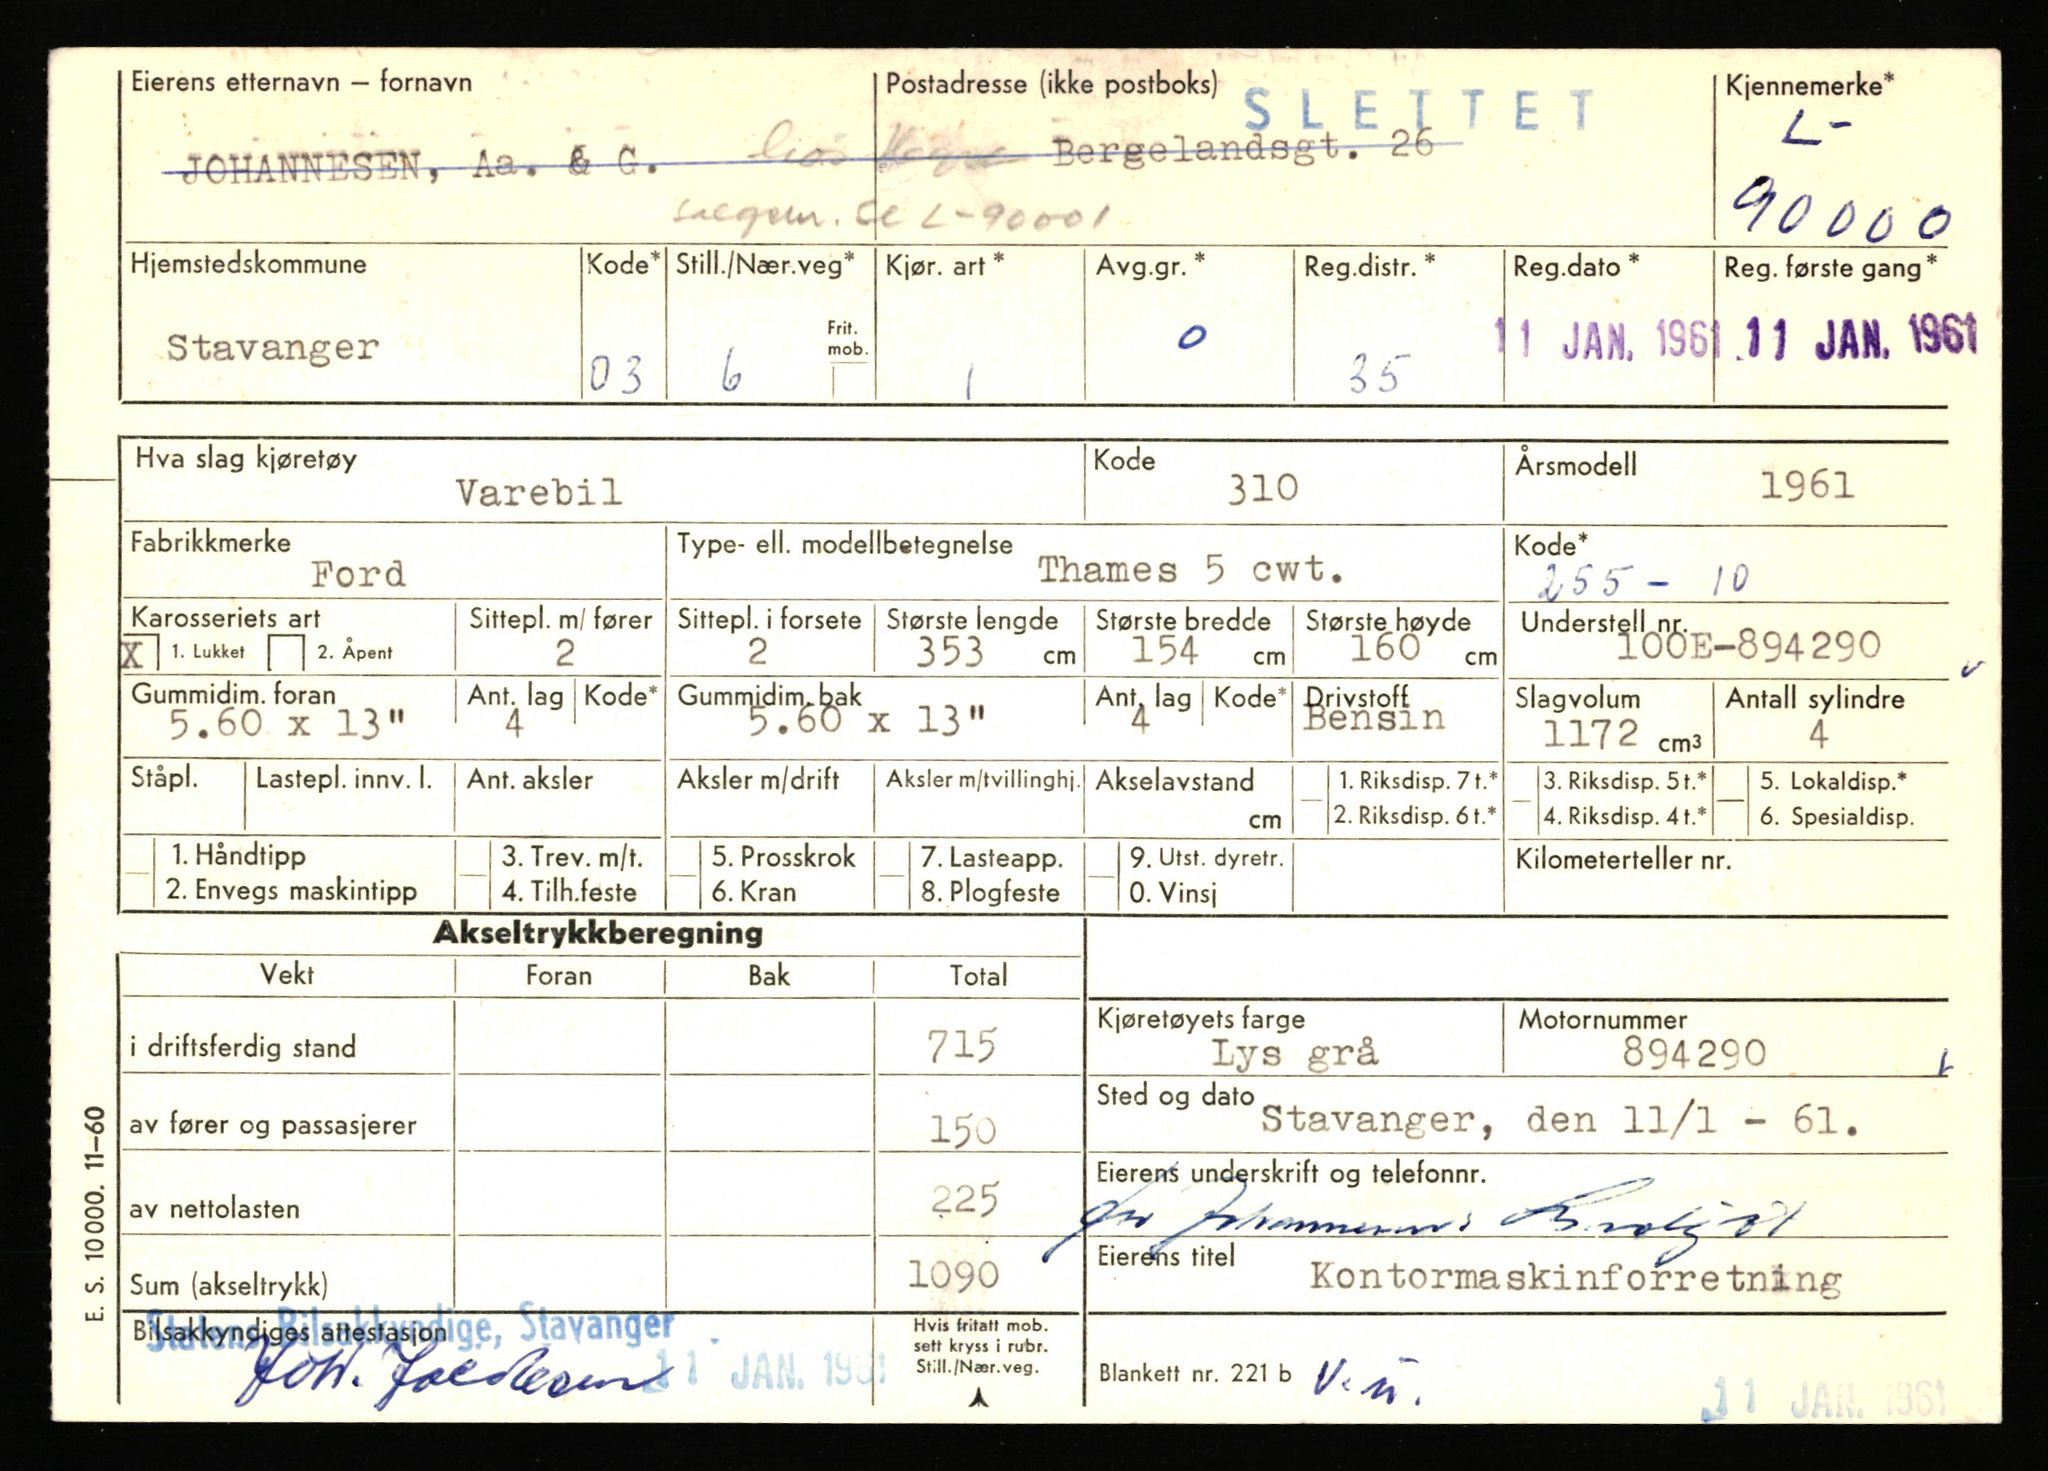 Eierens etternavn – fornavn Postadresse (ikke postboks) SLETTET Kjennemerke*
JOHANNESEN, Aa. & G. Bergelandsgt. 26 L-
L-90001 90000
Hjemstedskommune Kode* Still./Nær.veg* Kjør. art* Avg.gr.* Reg.distr.* Reg.dato* Reg. første gang*
Stavanger 03 6 Frit. mob. 1 0 35 11 JAN. 1961 11 JAN. 1961
Hva slag kjøretøy Kode Årsmodell
Varebil 310 1961
Fabrikkmerke Type- ell. modellbetegnelse Kode*
Ford Thames 5 cwt. 255 - 10
Karosseriets art Sittepl. m/ fører Sittepl. i forsete Største lengde Største bredde Største høyde Understell nr.
X 1. Lukket 2. Åpent 2 2 353 cm 154 cm 160 cm 100E-894290
Gummidim. foran Ant. lag Kode* Gummidim. bak Ant. lag Kode* Drivstoff Slagvolum Antall sylindre
5.60 x 13" 4 5.60 x 13" 4 Bensin 1172 cm³ 4
Ståpl. Lastepl. innv. l. Ant. aksler Aksler m/drift Aksler m/tvillinghj. Akselavstand 1. Riksdisp. 7 t.* 3. Riksdisp. 5 t.* 5. Lokaldisp.*
cm 2. Riksdisp. 6 t.* 4. Riksdisp. 4 t.* 6. Spesialdisp.
1. Håndtipp 3. Trev. m/t. 5. Prosskrok 7. Lasteapp. 9. Utst. dyretr. Kilometerteller nr.
2. Envegs maskintipp 4. Tilh.feste 6. Kran 8. Plogfeste 0. Vinsj
Akseltrykkberegning
Vekt Foran Bak Total
Kjøretøyets farge Motornummer
i driftsferdig stand 715 Lys grå 894290
Sted og dato
av fører og passasjerer 150 Stavanger, den 11/1 - 61.
Eierens underskrift og telefonnr.
av nettolasten 225
Eierens titel
Sum (akseltrykk) 1090 Kontormaskinforretning
Statens Bilsakkyndige, Stavanger
Bilsakkyndiges attestasjon Hvis fritatt mob. sett kryss i rubr. Still./Nær.veg.
11 JAN. 1961 Blankett nr. 221 b 11 JAN. 1961
E. S. 10000. 11–60